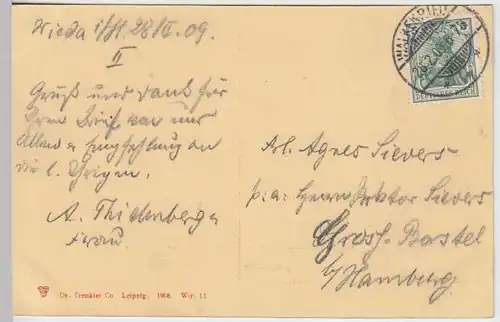 Wieda i/H. 28/II. 09.
II
Gruß und Dank für
Ihren Brief von uns
Allen u. Empfehlung an
die l. Ihrigen.
A. Thielenberg u.
Frau.
WALKENRIED
28.2.09
DEUTSCHES REICH
Frl. Agnes Sievers
p: a: Herrn Rektor Sievers
Gross-Borstel
b/Hamburg.
Dr. Trenkler Co. Leipzig. 1908. Wir. 11